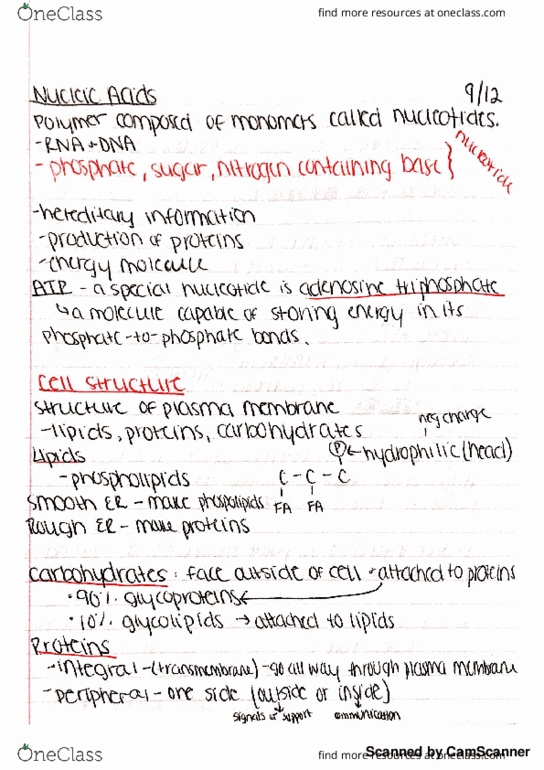 OneClass
find more resources at oneclass.com
Nucleic Acids 9/12
Polymer composed of monomers called nucleotides.
-RNA + DNA
- phosphate, sugar, nitrogen containing base } nucleotide
-hereditary information
-production of proteins
-energy molecule
ATP - a special nucleotide is adenosine triphosphate
↳ a molecule capable of storing energy in its
phosphate-to-phosphate bonds.
Cell structure
structure of plasma membrane
-lipids, proteins, carbohydrates
neg charge
Lipids
P ← hydrophilic (head)
-phospholipids C - C - C
Smooth ER - make phospolipids FA FA
Rough ER - make proteins
Carbohydrates: face outside of cell • attached to proteins
• 90% glycoproteins
• 10% glycolipids → attached to lipids
Proteins
-integral - (transmembrane) - go all way through plasma membrane
-peripheral - one side (outside or inside)
signals or support communication
OneClass
find more resources at oneclass.com
Scanned by CamScanner